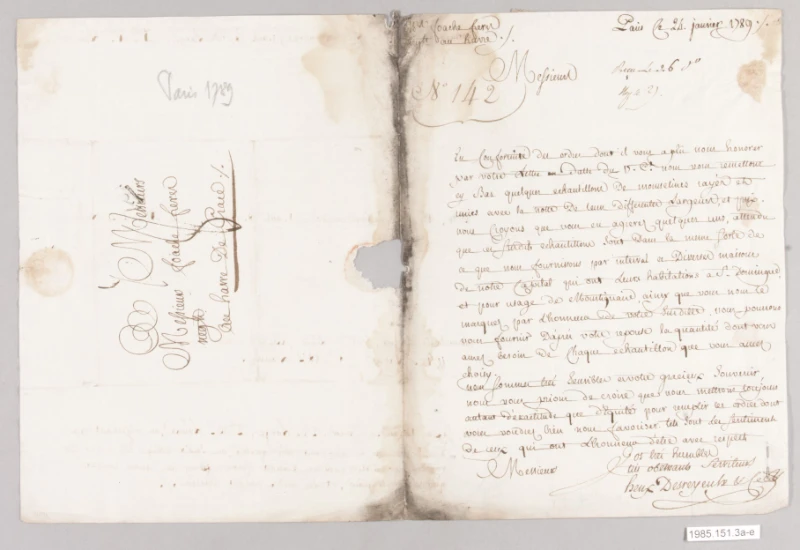 Paris 1789
A Messieurs
Messieurs foache frerer
negts
Au havre De Grace ./.
foache frerer
au havre ./.
Paris Ce 24 janvier 1789 ./.
N° 142
Messieurs
En Conformité des ordres dont il vous a plû nous honorer
par votre Lettre en datte du nous vous remettons
cy Bas quelques echantillons De mousselines rayés et
unies avec la notte De leurs Differentes Largeurs et prix
nous Croyons que vous en agierés quelques uns, attendu
que ces susdits echantillons sont Dans le meme sorte de
a que nous fournissons par interval a Diverses maisons
de notre Capital qui ont Leurs habitations a St. Domingue,
et pour usage de ainsy que vous nous le
marqués, par Lhonneur de votre susditte, nous pourrons
vous fournir Daprés votre reponse la quantité dont vous
aurés besoin de Chaque echantillon que vous aurés
choisy.
nous sommes trés sensibles a votre gracieux Souvenir
nous vous prions de croire que nous mettrons toujours
autant d'exactitude que d'équité pour remplir les ordres dont
vous voudrés bien nous favoriser tels sont les sentiments
de ceux qui ont Lhonneur d'etre avec respects
Messieurs
Vos trés humbles
trés obeissants Serviteurs
1985.151.3a-e